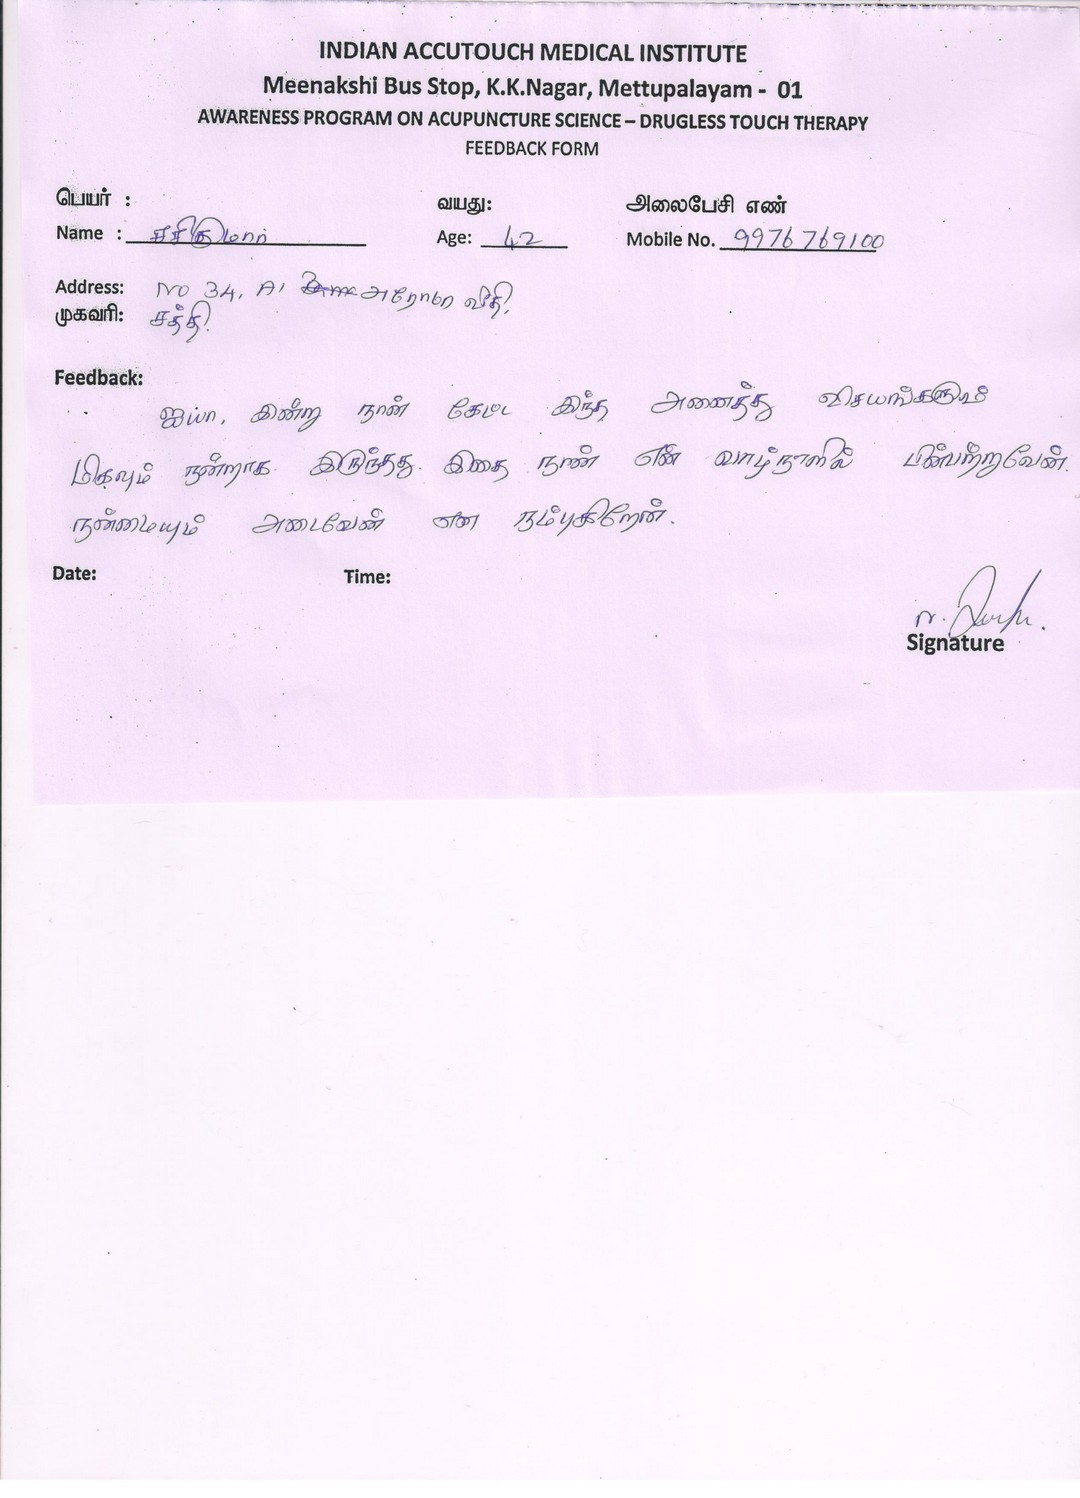 INDIAN ACCUTOUCH MEDICAL INSTITUTE
Meenakshi Bus Stop, K.K.Nagar, Mettupalayam - 01
AWARENESS PROGRAM ON ACUPUNCTURE SCIENCE – DRUGLESS TOUCH THERAPY
FEEDBACK FORM
பெயர் : வயது: அலைபேசி எண்
Name : சசிகுமார் Age: 42 Mobile No. 9976769100
Address: No 34, A1 வீதி,
முகவரி: சத்தி.
Feedback:
ஐயா, இன்று நான் கேட்ட இந்த அனைத்து விசயங்களும்
மிகவும் நன்றாக இருந்தது. இதை நான் என் வாழ்நாளில் பின்பற்றுவேன்.
நன்மையும் அடைவேன் என நம்புகிறேன்.
Date: Time:
Signature